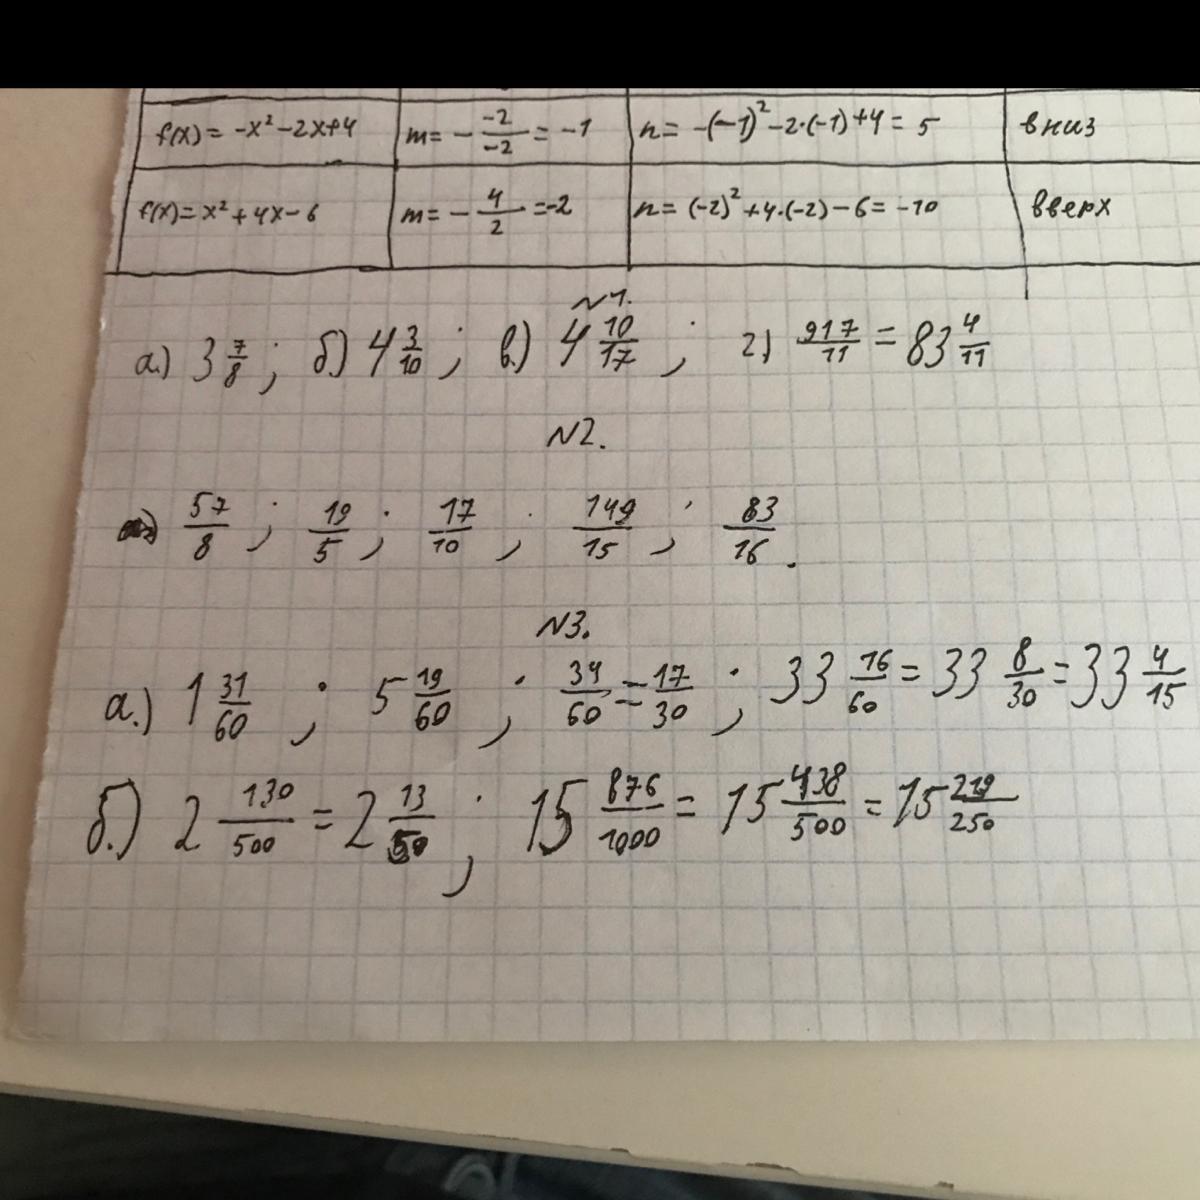 f(x)= -x²-2x+4 m= - -2/-2 = -1 n= -(-1)²-2·(-1)+4= 5 вниз
f(x)= x²+4x-6 m= - 4/2 =-2 n= (-2)²+4·(-2)-6= -10 вверх
N1.
а.) 3 7/8 ; б.) 4 3/10 ; в.) 4 10/17 ; г.) 917/11 = 83 4/11
N2.
57/8 ; 19/5 ; 17/10 ; 149/15 ; 83/16 .
N3.
а.) 1 31/60 ; 5 19/60 ; 34/60 = 17/30 ; 33 16/60 = 33 8/30 = 33 4/15
б.) 2 130/500 = 2 13/50 ; 15 876/1000 = 15 438/500 = 15 219/250